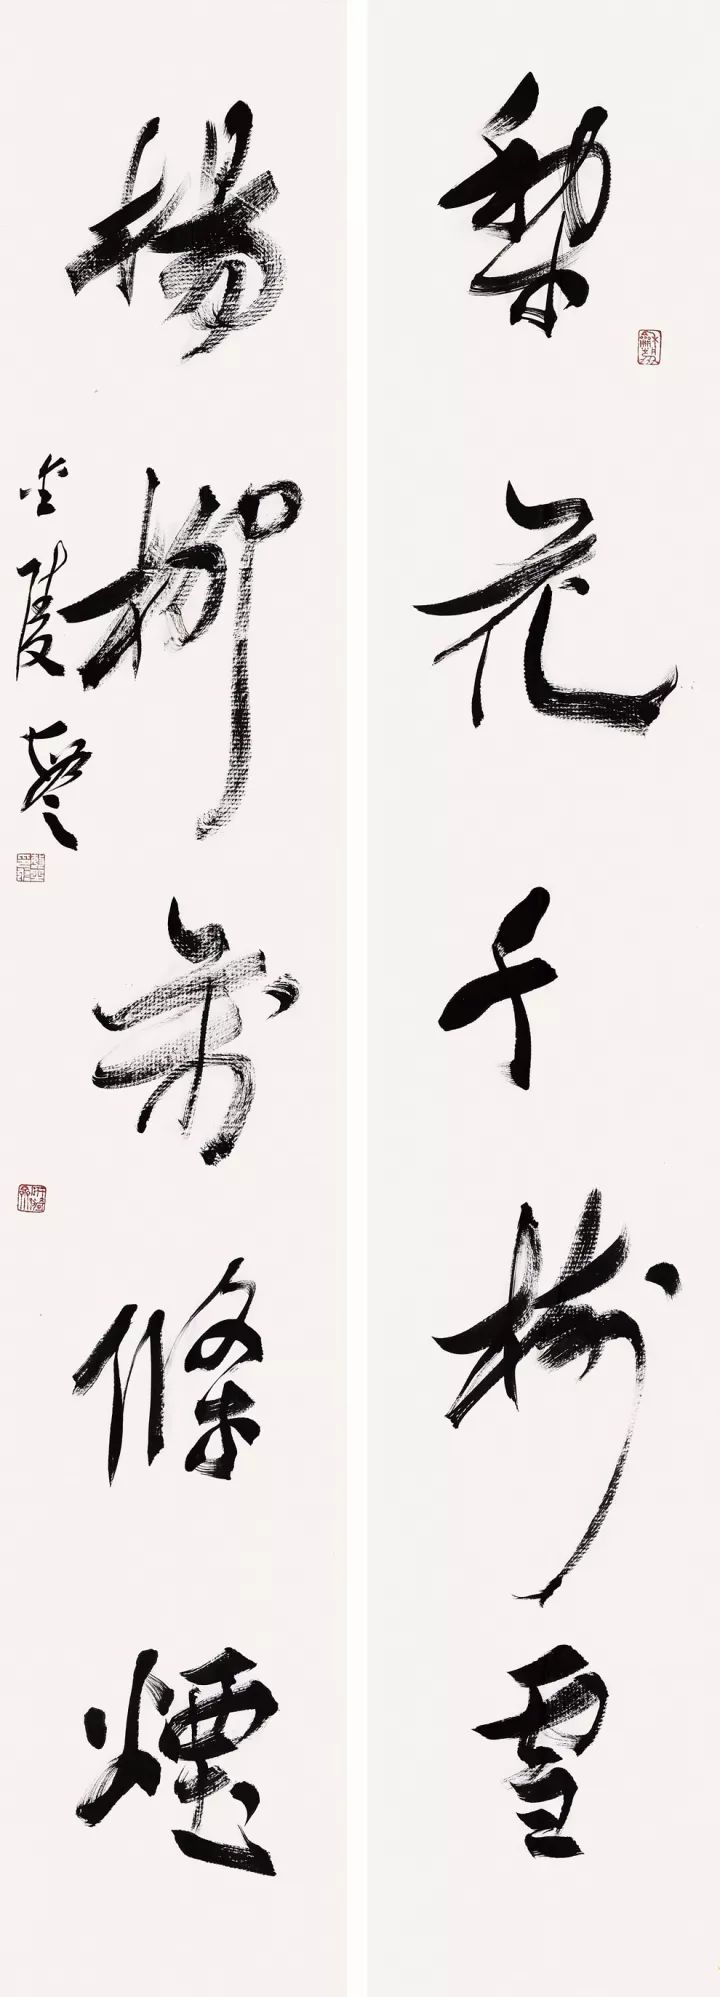 梨花千樹雪
楊柳萬條煙
金陵